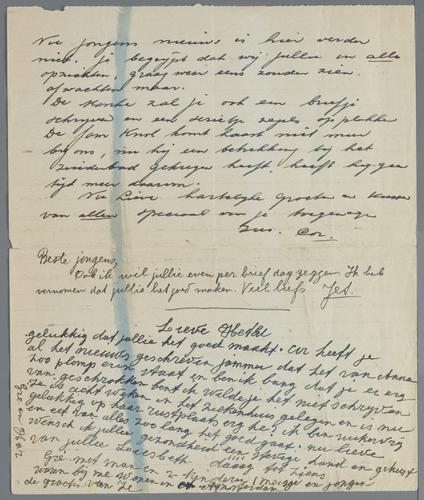 Nu jongens nieuws is hier verder
niet. je begrijpt dat wij jullie in alle
opzichten, graag weer eens zouden zien.
afwachten maar.
De Henke zal je ook een briefje
schrijven en een serietje zegels opplakken
De Jan Knol komt haast niet meer
bij ons, nu hij een betrekking bij het
Zuiderbad gekregen heeft, heeft hij geen
tijd meer daarvoor.
Nu Lieve hartelijke Groeten en kussen
van allen speciaal van je toegenegen
Zus. Cor.
Beste jongens,
Ook ik wil jullie even per brief dag zeggen. Ik heb
vernomen dat jullie het goed maken. Veel liefs Jet.
Lieve
gelukkig dat jullie het goed maakt. Cor heeft je
al het nieuws geschreven jammer dat het van Anna
zoo plomp erin staat en ben ik bang dat je er erg
van geschrokken bent ik wilde je het niet schrijven
ze is acht weken in het ziekenhuis gelegen en is nu
gelukkig op haar rustplaats erg he, ik ben suikerziek
en eet van alles zoo lang het goed gaat. nu lieve
wensch ik jullie gezondheid een stevige hand en gekust
van jullie Liesbeth daaag tot ziens
Gré met man en 2 kinderen 1 meisje en 1 jongen
waren bij me wonen in Amsterdam
de groeten van ze